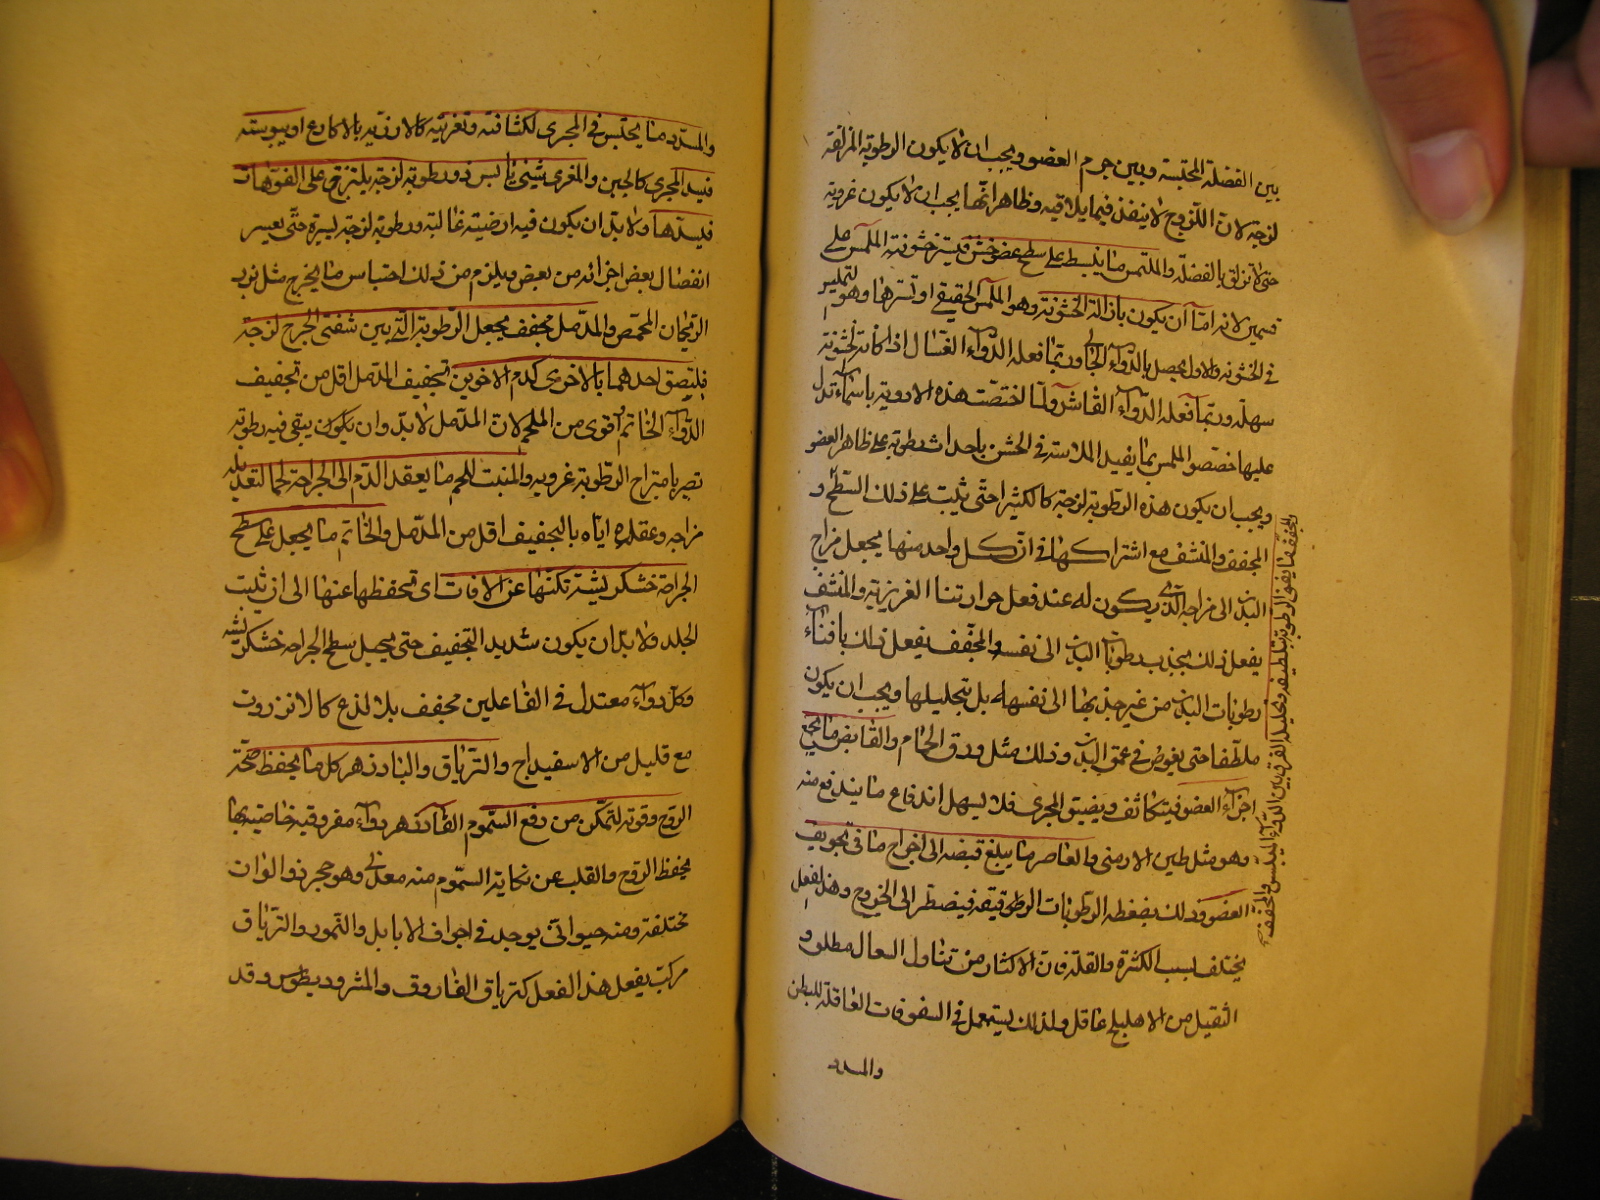 بين الفضلة المحتبسة وبين جرم العضو ويجب ان لا يكون الرطوبة المزلقة
لزجة لان اللزوج لا ينفذ فيما يلاقيه وظاهر انها يجب ان لا يكون غروية
حتى لا تزلق بالفضلة والمملس ما ينبسط على سطح عضو خشن فيستر خشونته الملمس على
قسمين لانه اما ان يكون بازالة الخشونة وهو الملمس الحقيقي او تسترها وهو
في الخشونة والاول يحصل بالدواء الجالي وربما فعله الدواء الغسال اذا كانت الخشونة
سهلة وربما فعله الدواء القاشر ولما اختصت هذه الادوية باسماء تدل
عليها خصصوا المملس بما يفيد الملاسة في الخشن باحداث رطوبة على ظاهر العضو
ويجب ان يكون هذه الرطوبة لزجة كالكثيرا حتى يثبت على ذلك السطح و
المجفف والمنشف مع اشتراكهما في ان كل واحد منهما يجعل مزاج
البدن الى مزاجه الذي يكون له عند فعل حرارتنا الغريزية والمنشف
يفعل ذلك بجذب رطوبات البدن الى نفسه والمجفف يفعل ذلك بافناء
رطوبات البدن من غير جذبها الى نفسها بل بتحليلها ويجب ان يكون
ملطفا حتى يغوص في عمق البدن وذلك مثل ورق الحمام والقابض ما يجمع
اجزاء العضو فيتكاثف ويضيق المجرى فلا يسهل اندفاع ما يندفع منه
وهو مثل طين الارمني والعاصر ما يبلغ قبضه الى اخراج ما في تجويف
العضو وذلك بضغطه الرطوبات الرقيقة فيضطر الى الخروج وهذا الفعل
يختلف بسبب الكثرة والقلة فان الاكثار من تناول مطلق و
القليل من الاهليلج عاقل ولذلك يستعمل في السفوفات العاقلة للبطن
والمسدد
والمجفف ما يفنى الرطوبة بتلطيفه وتحليله الفرق بين الدواء الميبس والمجفف
والمسدد ما يحتبس في المجرى لكثافته وتغريته كالارزية بالاكارع او يبوسته
فيسد المجرى كالجبن والمغري شيئ يابس ذو رطوبة لزجة يلتزق على الفوهات
فيسدها ولا بد ان يكون فيه ارضية غالبة ورطوبة لزجة يسيرة حتى يعسر
انفصال بعض اجزائه من بعض ويلزم من ذلك احتباس ما يخرج مثل بزر
الريحان المحمص والمدمل مجفف يجعل الرطوبة التي بين شفتي الجرح لزجة
فيلتصق احدهما بالاخرى كدم الاخوين تجفيف المدمل اقل من تجفيف
الدواء الخاتم واقوى من الملحم لان المدمل لا بد وان يكون يبقى فيه رطوبة
تصير بامتزاج الرطوبة غروية والمنبت للحم ما يعقد الدم الى الجراحة لحما لتعديله
مزاجه وعقله اياه بالتجفيف اقل من المدمل والخاتم ما يجعل على سطح
الجراحة خشكريشة تكنها عن الافات اي تحفظها عنها الى ان ينبت
الجلد ولا بد ان يكون شديد التجفيف حتى يجعل سطح الجراحة خشكريشة
وكل دواء معتدل في الفاعلين مجفف بلا لذع كالانزروت
مع قليل من الاسفيداج والترياق والبادزهر كل ما يحفظ صحة
الروح وقوته لتمكن من دفع السموم الفادزهر دواء مفرد فيه خاصية بها
يحفظ الروح والقلب عن نكاية السموم منه معدني وهو حجر ذو الوان
مختلفة ومنه حيواني يوجد في اجواف الابابل والنمور والترياق
مركب يفعل هذا الفعل كترياق الفاروق والمثروديطوس وقد